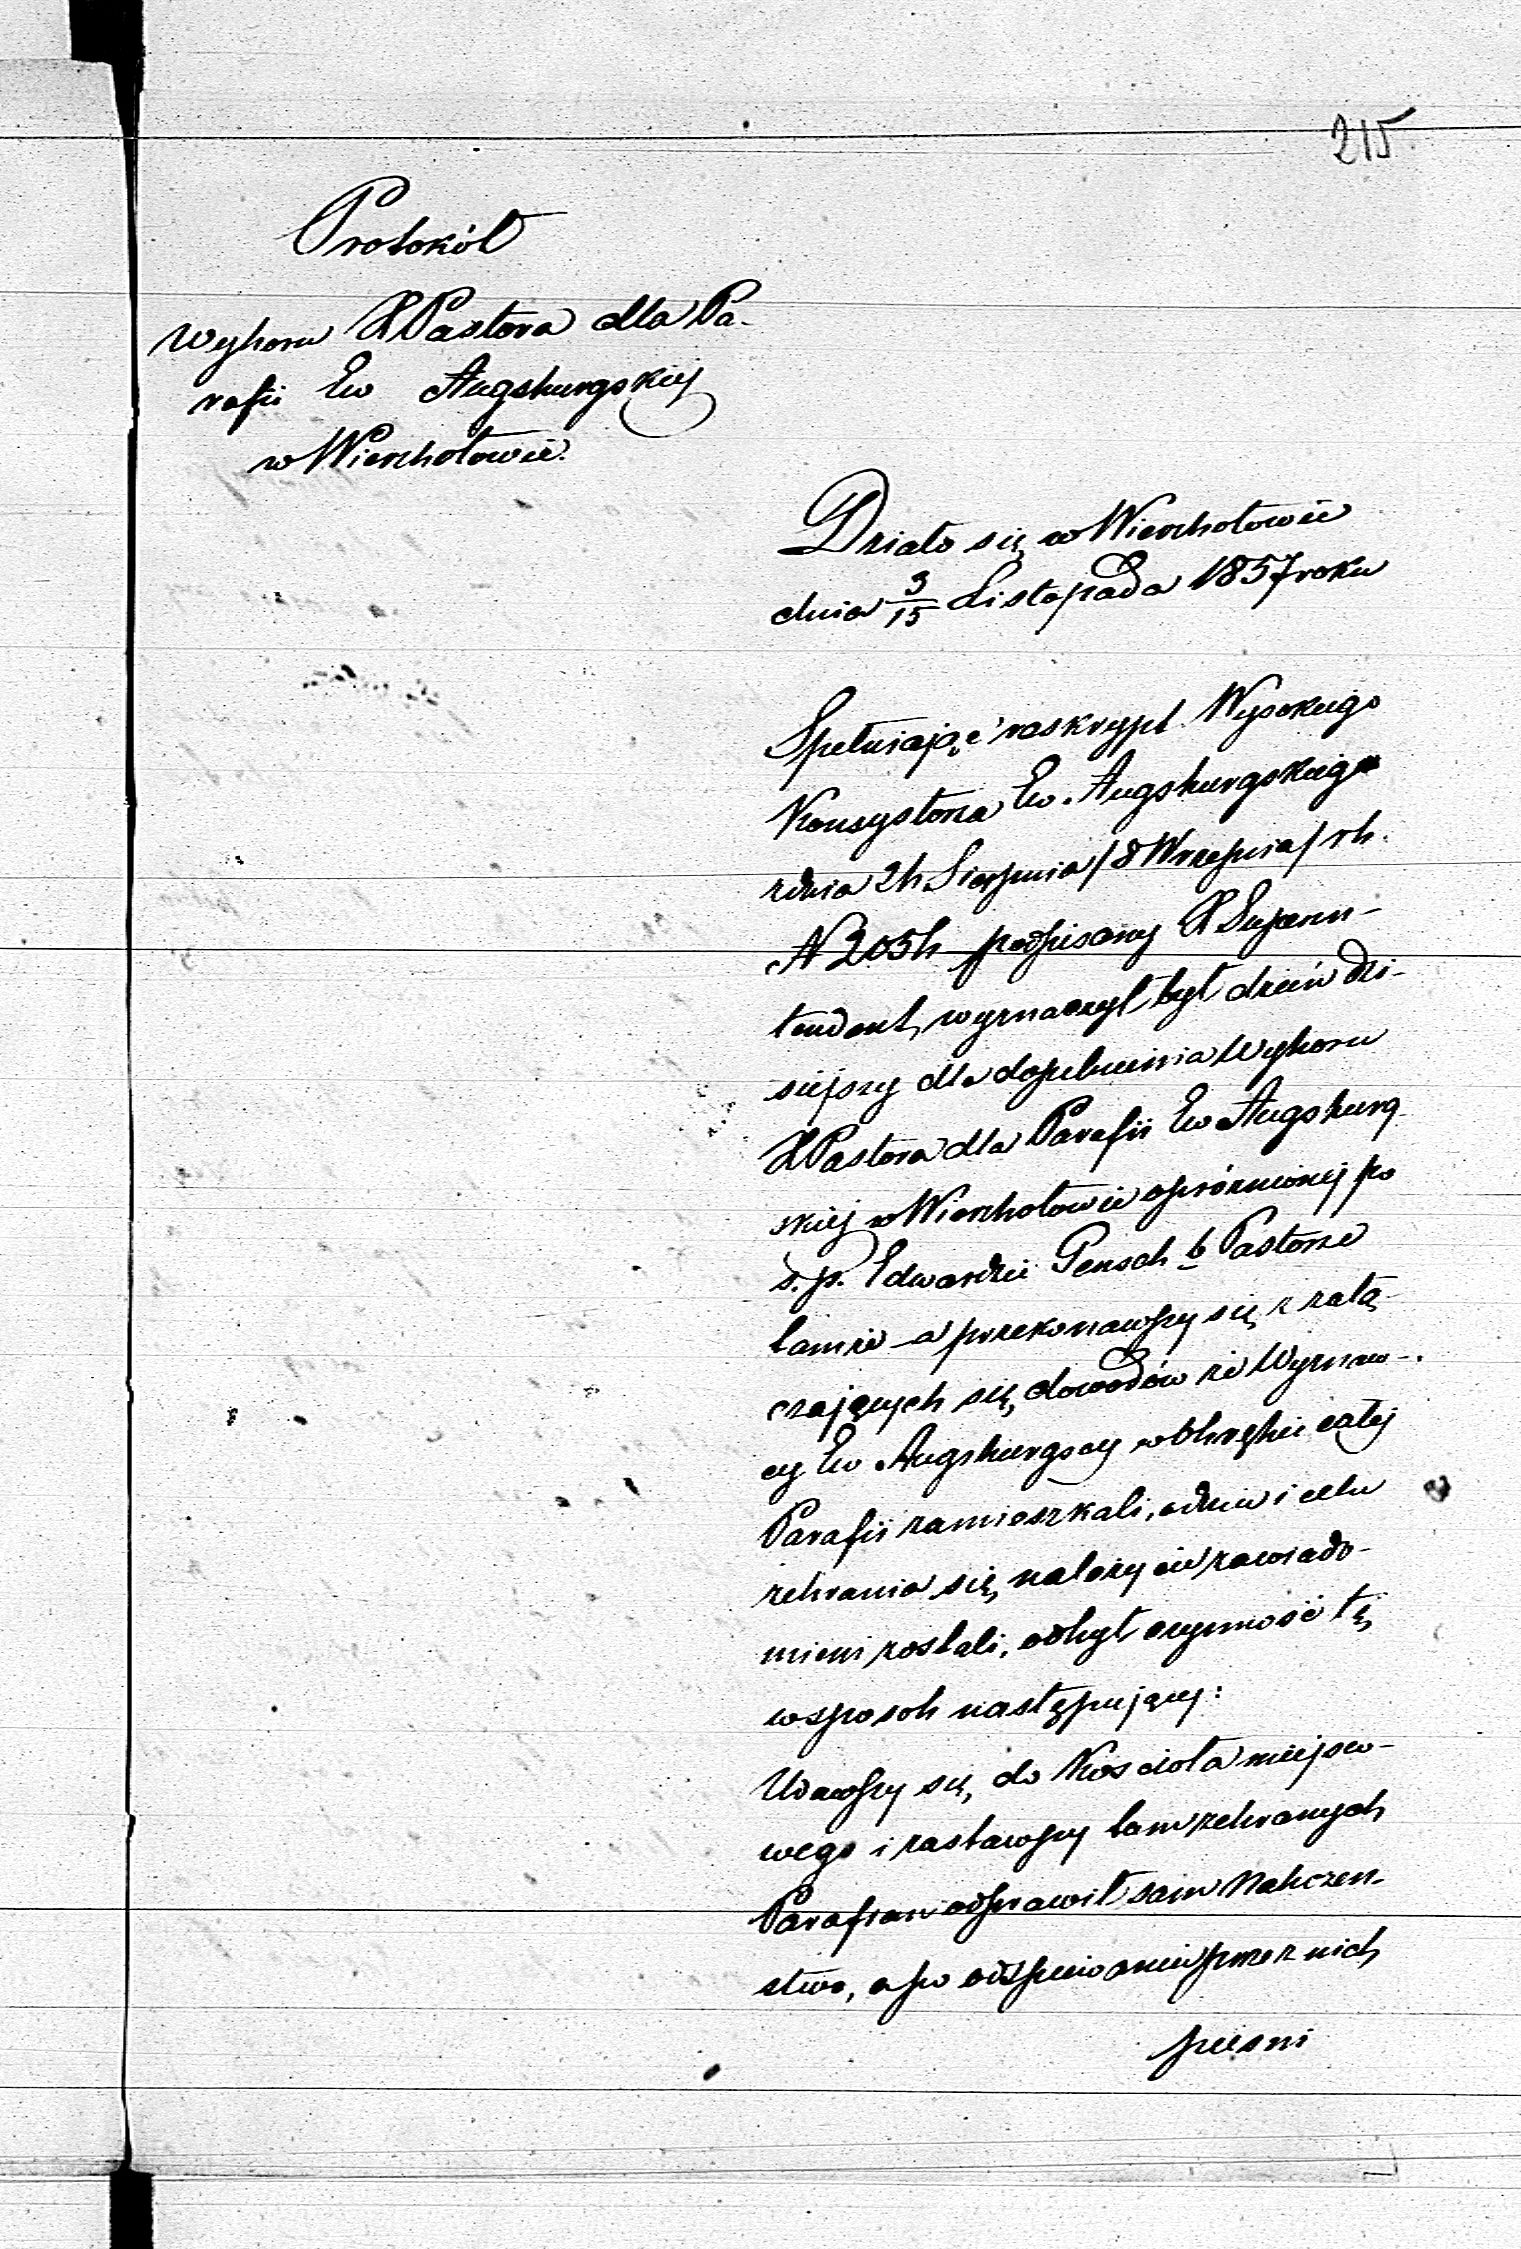 215
Protokół
Wyboru X Pastora dla Pa-
rafii Ew Augsburgskiej
w Wierzchołowie.
Działo się w Wierzchołowie
dnia 3/15 Listopada 1857 roku
Spełniając raskrypt Wysokiego
Konsystorza Ew. Augsburgskiego
z dnia 26 Sierpnia /8 Września/ rb.
N 2056 podpisany X Superin-
tendent, wyznaczył był dzień dzi-
siejszy dla dopełnienia Wyboru
X Pastora dla Parafii Ew Augsburg-
skiej w Wierzchołowie opróżnionej po
s. p. Edwardzie Pensch b Pastorze
tamże a przekonawszy się z załą-
czających się, dowodów że Wyznaw-
cy Ew Augsburgscy w Obrębie całej
Parafii zamieszkali, o dniu i celu
zebrania się, należycie zawiado-
mieni zostali, odbył czynność tę
w sposob następujący:
Udawszy się, do Kościoła miejsco-
wego i zastawszy tam zebranych
Parafian odprawił sam Nabożeń-
stwo, a po odśpiewaniu przez nich
pieśni